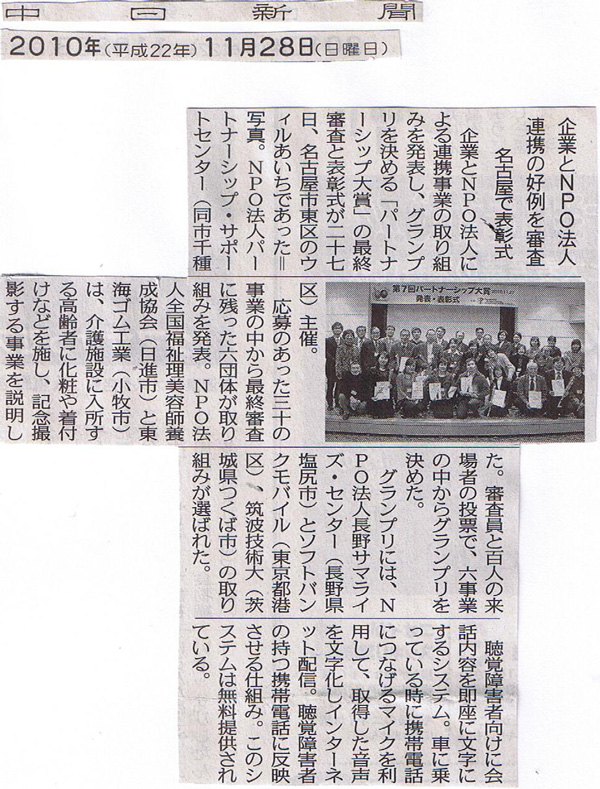 中日新聞
2010年(平成22年)11月28日(日曜日)
企業とNPO法人
連携の好例を審査
名古屋で表彰式
企業とNPO法人に
よる連携事業の取り組
みを発表し、グランプ
リを決める「パートナ
ーシップ大賞」の最終
審査と表彰式が二十七
日、名古屋市東区のウ
ィルあいちであった＝
写真。NPO法人パー
トナーシップ・サポー
トセンター（同市千種
第7回パートナーシップ大賞
発表・表彰式
区）主催。
応募のあった三十の
事業の中から最終審査
に残った六団体が取り
組みを発表。NPO法
人全国福祉理美容師養
成協会（日進市）と東
海ゴム工業（小牧市）
は、介護施設に入所す
る高齢者に化粧や着付
けなどを施し、記念撮
影する事業を説明し
た。審査員と百人の来
場者の投票で、六事業
の中からグランプリを
決めた。
グランプリには、N
PO法人長野サマライ
ズ・センター（長野県
塩尻市）とソフトバン
クモバイル（東京都港
区）、筑波技術大（茨
城県つくば市）の取り
組みが選ばれた。
聴覚障害者向けに会
話内容を即座に文字に
するシステム。車に乗
っている時に携帯電話
につなげるマイクを利
用して、取得した音声
を文字化しインターネ
ット配信。聴覚障害者
の持つ携帯電話に反映
させる仕組み。このシ
ステムは無料提供され
ている。